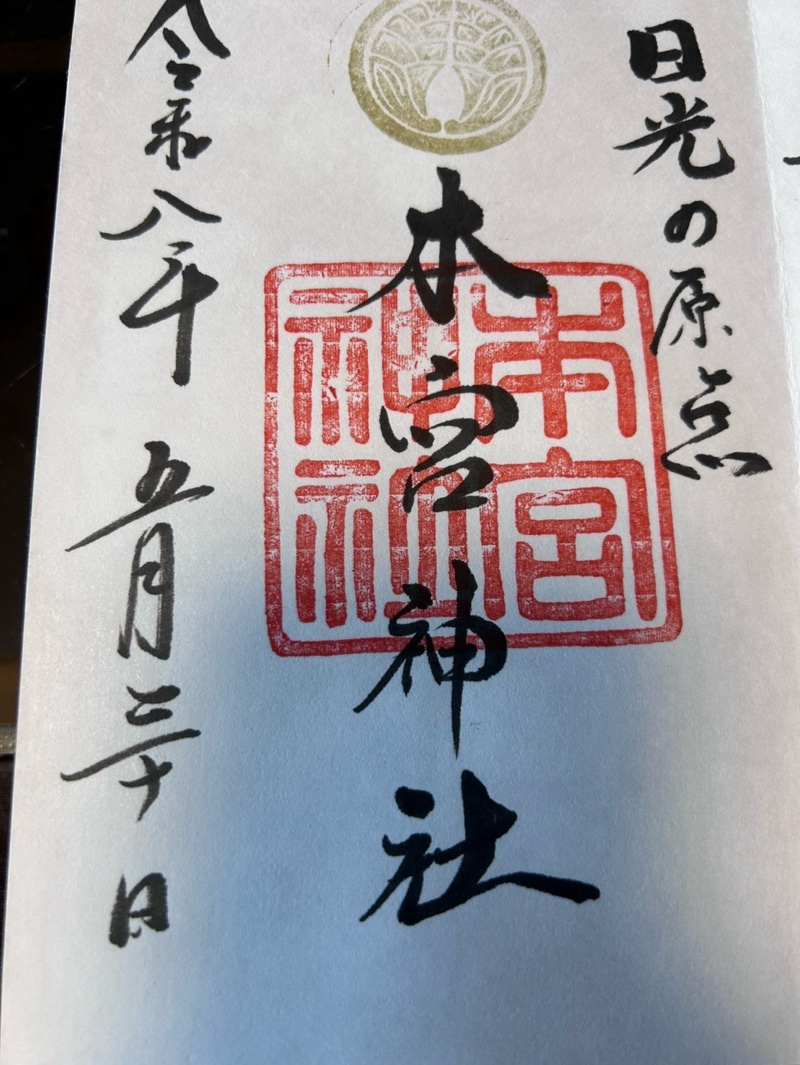 日光の原点
本宮神社
本宮
神社
令和八年 五月三十日